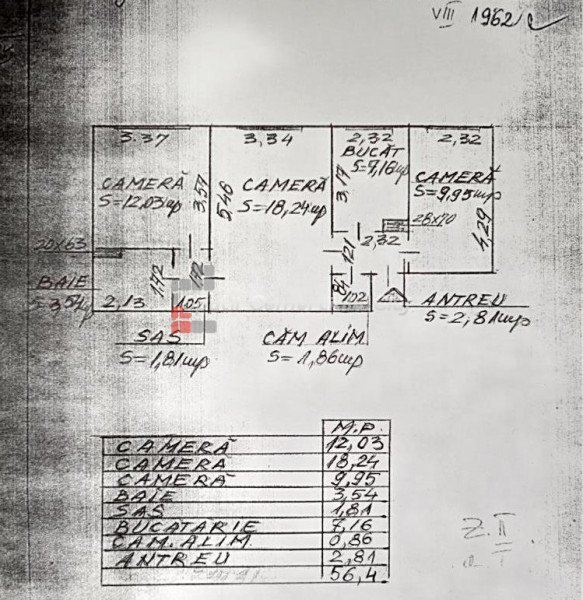 VIII 1962
3.37
3,34
2,32
2,32
BUCĂT
S=7,16mp
CAMERĂ
S=12,03mp
3,57
5,46
CAMERĂ
S=18,24mp
3,17
CAMERĂ
S=9,95mp
28x70
4,29
2,32
1,21
20x63
BAIE
S=3,54mp
1,72
1,72
2,13
1,05
,81
1,02
ANTREU
S=2,81mp
SAS
S=1,81mp
CĂM ALIM
S=1,86mp
M.P.
CAMERĂ 12,03
CAMERA 18,24
CAMERĂ 9,95
BAIE 3,54
SAS 1,81
BUCATARIE 7,16
CAM.ALIM. 0,86
ANTREU 2,81
56,4
Z.II